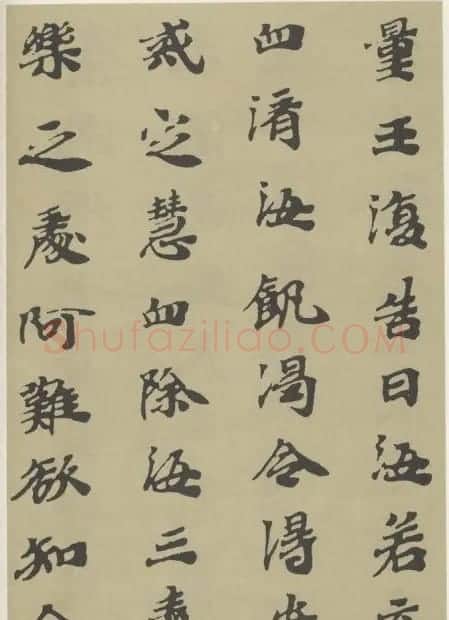 量王復告曰汝若
血濟汝飢渴令得
戒定慧血除汝三毒
樂之處阿難欲知
Shufaziliao.COM